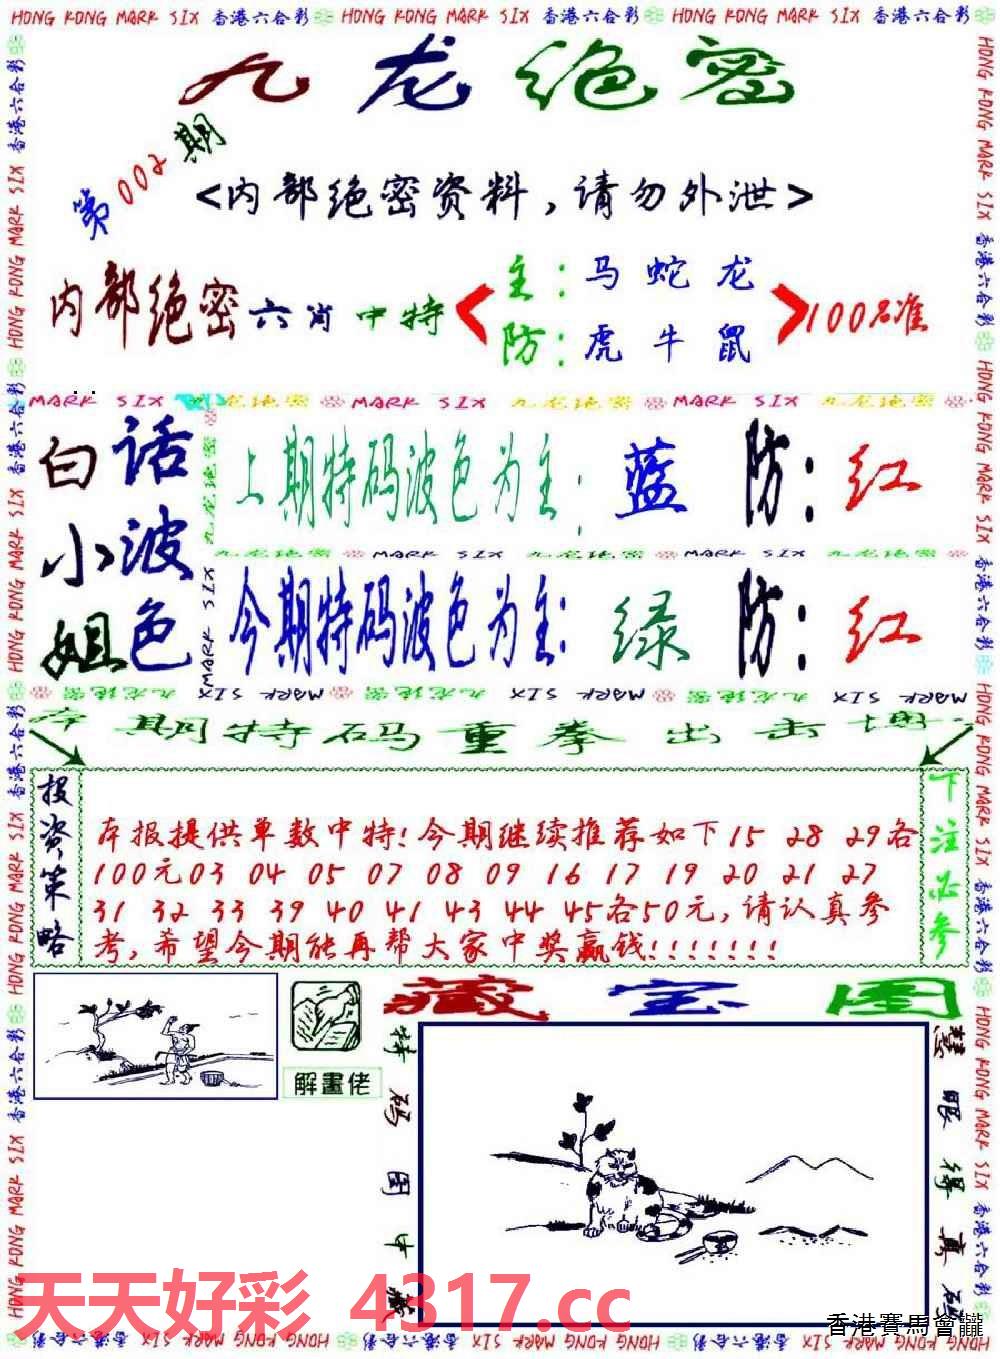 HONG KONG MARK SIX 香港六合彩 HONG KONG MARK SIX 香港六合彩 HONG KONG MARK SIX 香港六合彩
九龙绝密
第002期
<内部绝密资料，请勿外泄>
内部绝密六肖中特
主：马 蛇 龙
防：虎 牛 鼠
100%准
MARK SIX 九龙绝密 MARK SIX 九龙绝密 MARK SIX 九龙绝密
白小姐
话波色
上期特码波色为主：蓝 防：红
九龙绝密 MARK SIX 九龙绝密 MARK SIX 九龙绝密
今期特码波色为主：绿 防：红
本期特码重拳出击
投资策略
本报提供单数中特!今期继续推荐如下15 28 29各
100元03 04 05 07 08 09 16 17 19 20 21 27
31 32 33 39 40 41 43 44 45各50元,请认真参
考,希望今期能再帮大家中奖赢钱!!!!!!!
下注必参
藏宝图
解畫佬
特码图中藏
慧眼得真码
天天好彩 4317.cc
香港賽馬會